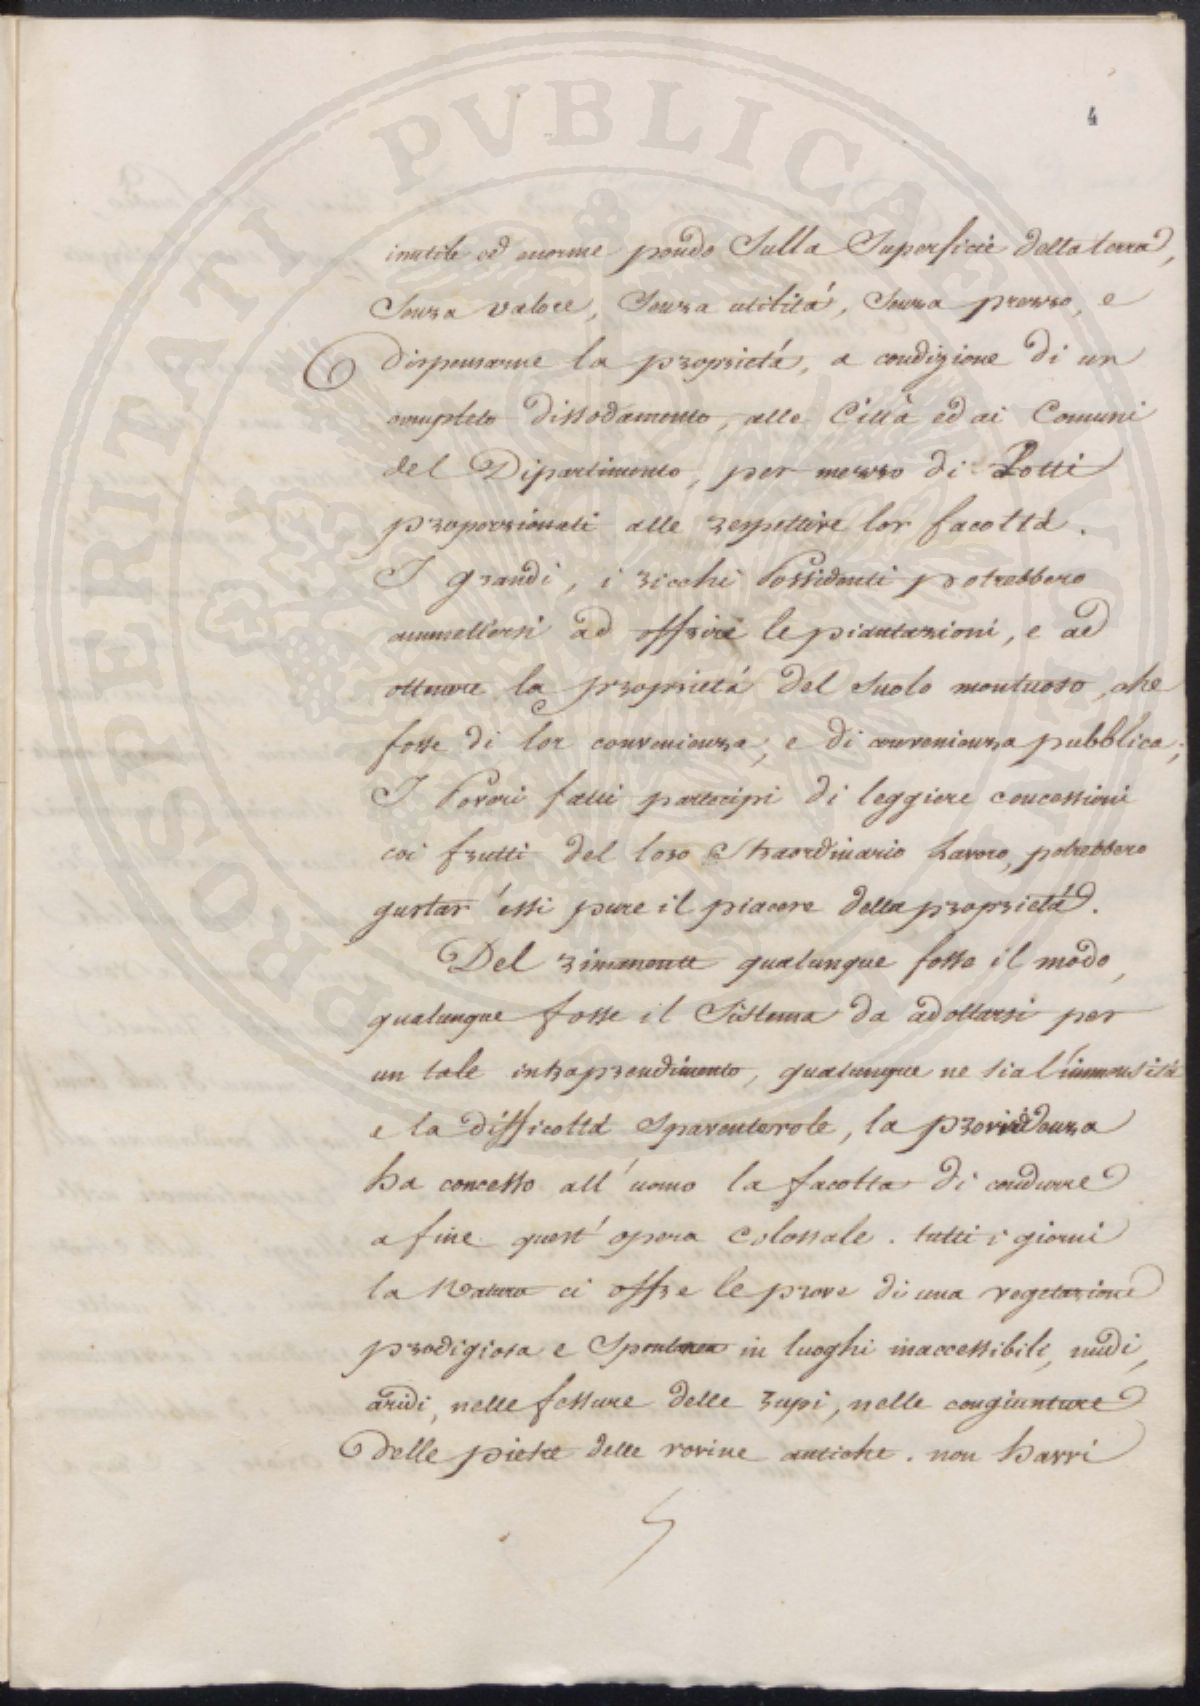 4
inutile ed enorme pondo Sulla Superficie della terra,
Senza valore, Senza utilità, Senza prezzo, e
dispensarne la proprietà, a condizione di un
completo dissodamento, alle Città ed ai Comuni
del Dipartimento, per mezzo di Lotti
proporzionali alle respettive lor facoltà.
I grandi, i ricchi Possidenti potrebbero
ammettersi ad offrire le piantazioni, e ad
ottenere la proprietà del Suolo montuoso, che
fosse di lor convenienza, e di convenienza pubblica;
I Poveri fatti partecipi di leggiere concessioni
coi frutti del loro Straordinario Lavoro, potrebbero
gustar' essi pure il piacere della proprietà.
Del rimanente qualunque fosse il modo,
qualunque fosse il Sistema da adottarsi per
un tale intraprendimento, qualunque ne sia l'immensità
e la difficoltà Spaventevole, la providenza
ha concesso all' uomo la facolta di condurre
a fine quest' opera Colossale. tutti i giorni
la Natura ci offre le prove di una vegetazione
prodigiosa e Spontanea in luoghi inaccessibili, nudi,
aridi, nelle fessure delle rupi, nelle congiunture
delle pietre delle rovine antiche. non havvi
PROSPERITATI PVBLICAE AVGENDAE